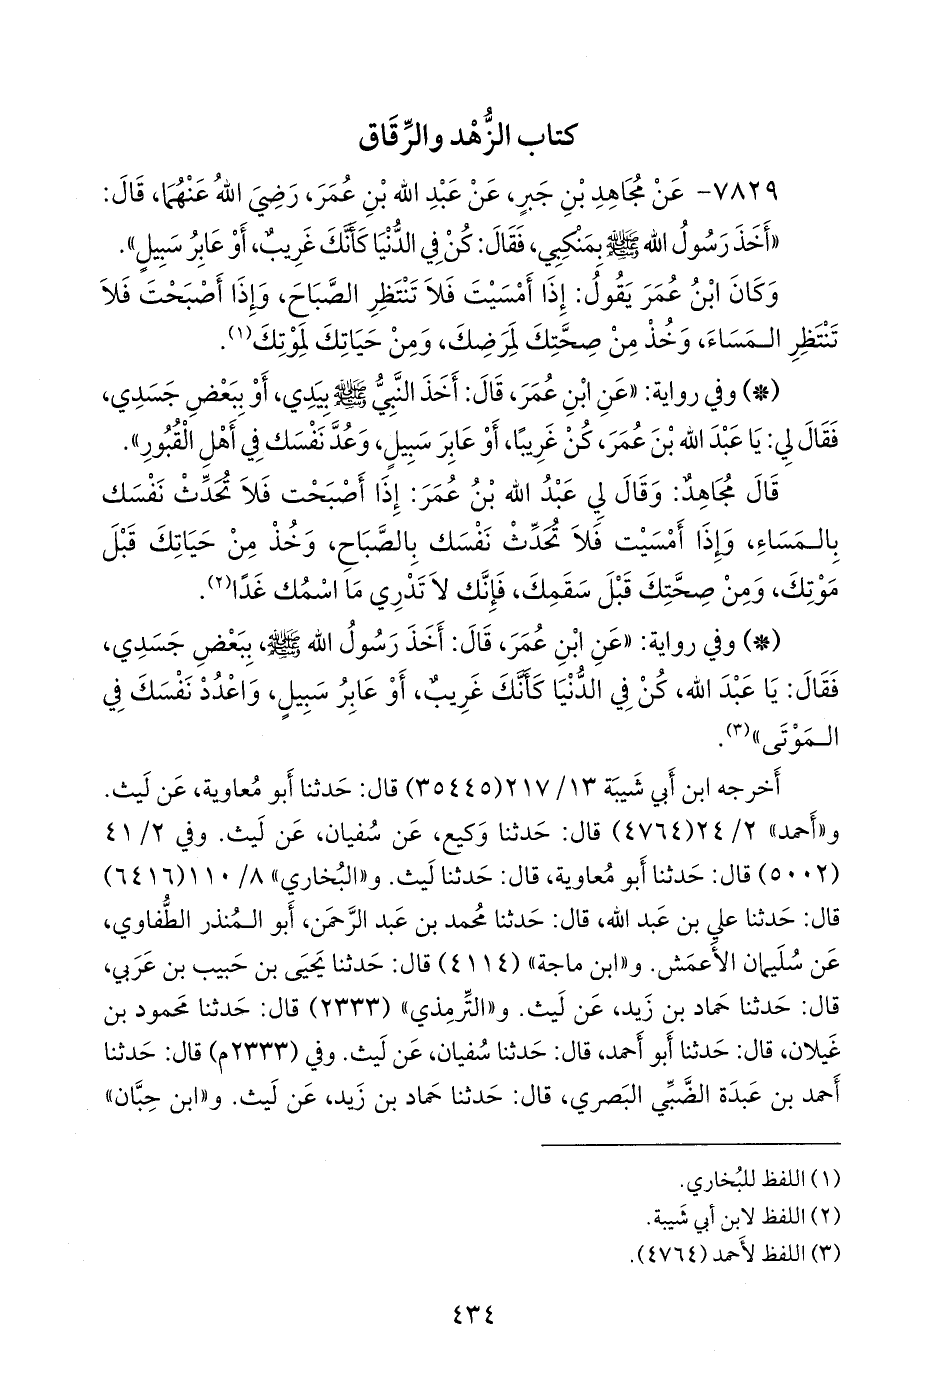 كتاب الزُّهْد والرِّقَاق
٧٨٢٩- عَنْ مُجَاهِدِ بْنِ جَبرٍ، عَنْ عَبْدِ الله بْنِ عُمَرَ، رَضِيَ اللهُ عَنْهُمَا، قَالَ:
«أَخَذَ رَسُولُ الله ﷺ بِمَنْكِبِي، فَقَالَ: كُنْ فِي الدُّنْيَا كَأَنَّكَ غَرِيبٌ، أَوْ عَابِرُ سَبِيلٍ».
وَكَانَ ابْنُ عُمَرَ يَقُولُ: إِذَا أَمْسَيْتَ فَلاَ تَنْتَظِرِ الصَّبَاحَ، وَإِذَا أَصْبَحْتَ فَلاَ
تَنْتَظِرِ الـمَسَاءَ، وَخُذْ مِنْ صِحَّتِكَ لِمَرَضِكَ، وَمِنْ حَيَاتِكَ لِمَوْتِكَ(١).
(*) وفي رواية: «عَنِ ابْنِ عُمَرَ، قَالَ: أَخَذَ النَّبِيُّ ﷺ بِيَدِي، أَوْ بِبَعْضِ جَسَدِي،
فَقَالَ لِي: يَا عَبْدَ الله بْنَ عُمَرَ، كُنْ غَرِيبًا، أَوْ عَابِرَ سَبِيلٍ، وَعُدَّ نَفْسَك فِي أَهْلِ الْقُبُورِ».
قَالَ مُجَاهِدٌ: وَقَالَ لِي عَبْدُ الله بْنُ عُمَرَ: إِذَا أَصْبَحْت فَلاَ تُحَدِّثْ نَفْسَك
بِالـمَسَاءِ، وَإِذَا أَمْسَيْت فَلاَ تُحَدِّثْ نَفْسَك بِالصَّبَاحِ، وَخُذْ مِنْ حَيَاتِكَ قَبْلَ
مَوْتِكَ، وَمِنْ صِحَّتِكَ قَبْلَ سَقَمِكَ، فَإِنَّك لاَ تَدْرِي مَا اسْمُك غَدًا(٢).
(*) وفي رواية: «عَنِ ابْنِ عُمَرَ، قَالَ: أَخَذَ رَسُولُ الله ﷺ، بِبَعْضِ جَسَدِي،
فَقَالَ: يَا عَبْدَ الله، كُنْ فِي الدُّنْيَا كَأَنَّكَ غَرِيبٌ، أَوْ عَابِرُ سَبِيلٍ، وَاعْدُدْ نَفْسَكَ فِي
الـمَوْتَى»(٣).
أَخرجه ابن أَبي شَيبَة ١٣/ ٢١٧(٣٥٤٤٥) قال: حَدثنا أَبو مُعاوية، عَن لَيث.
و«أَحمد» ٢/ ٢٤(٤٧٦٤) قال: حَدثنا وَكيع، عَن سُفيان، عَن لَيث. وفي ٢/ ٤١
(٥٠٠٢) قال: حَدثنا أَبو مُعاوية، قال: حَدثنا لَيث. و«البُخاري» ٨/ ١١٠(٦٤١٦)
قال: حَدثنا علي بن عَبد الله، قال: حَدثنا مُحمد بن عَبد الرَّحمَن، أَبو الـمُنذر الطُّفاوي،
عَن سُلَيمان الأَعمَش. و«ابن ماجة» (٤١١٤) قال: حَدثنا يَحيَى بن حَبيب بن عَرَبي،
قال: حَدثنا حَماد بن زَيد، عَن لَيث. و«التِّرمِذي» (٢٣٣٣) قال: حَدثنا مَحمود بن
غَيلان، قال: حَدثنا أَبو أَحمد، قال: حَدثنا سُفيان، عَن لَيث. وفي (٢٣٣٣م) قال: حَدثنا
أَحمد بن عَبدَة الضَّبِّي البَصري، قال: حَدثنا حَماد بن زَيد، عَن لَيث. و«ابن حِبَّان»
(١) اللفظ للبُخاري.
(٢) اللفظ لابن أبي شَيبة.
(٣) اللفظ لأَحمد (٤٧٦٤).
٤٣٤